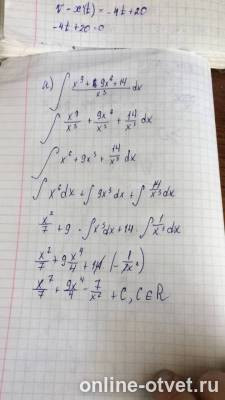 v - x'(t) = -4t + 20
-4t + 20 = 0
a) ∫ (x⁹ + 9x⁶ + 14)/x³ dx
∫ x⁹/x³ + 9x⁶/x³ + 14/x³ dx
∫ x⁶ + 9x³ + 14/x³ dx
∫ x⁶dx + ∫ 9x³dx + ∫ 14/x³ dx
x⁷/7 + 9 · ∫ x³dx + 14 · ∫ 1/x³ dx
x⁷/7 + 9x⁴/4 + 14 · (-1/2x²)
x⁷/7 + 9x⁴/4 - 7/x² + C, C ∈ R
online-otvet.ru